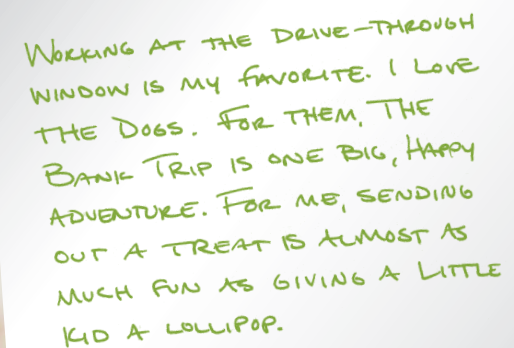 Working at the drive-through
window is my favorite. I love
the dogs. For them, the
bank trip is one big, happy
adventure. For me, sending
out a treat is almost as
much fun as giving a little
kid a lollipop.